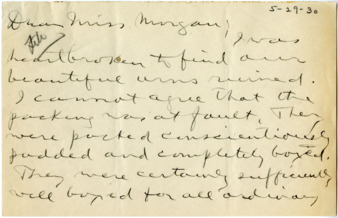 5-29-30
Dear Miss Morgan,
File
I was
heartbroken to find our
beautiful urns ruined.
I cannot agree that the
packing was at fault. They
were packed conscientiously
padded and completely boxed.
They were certainly sufficiently
well boxed for all ordinary